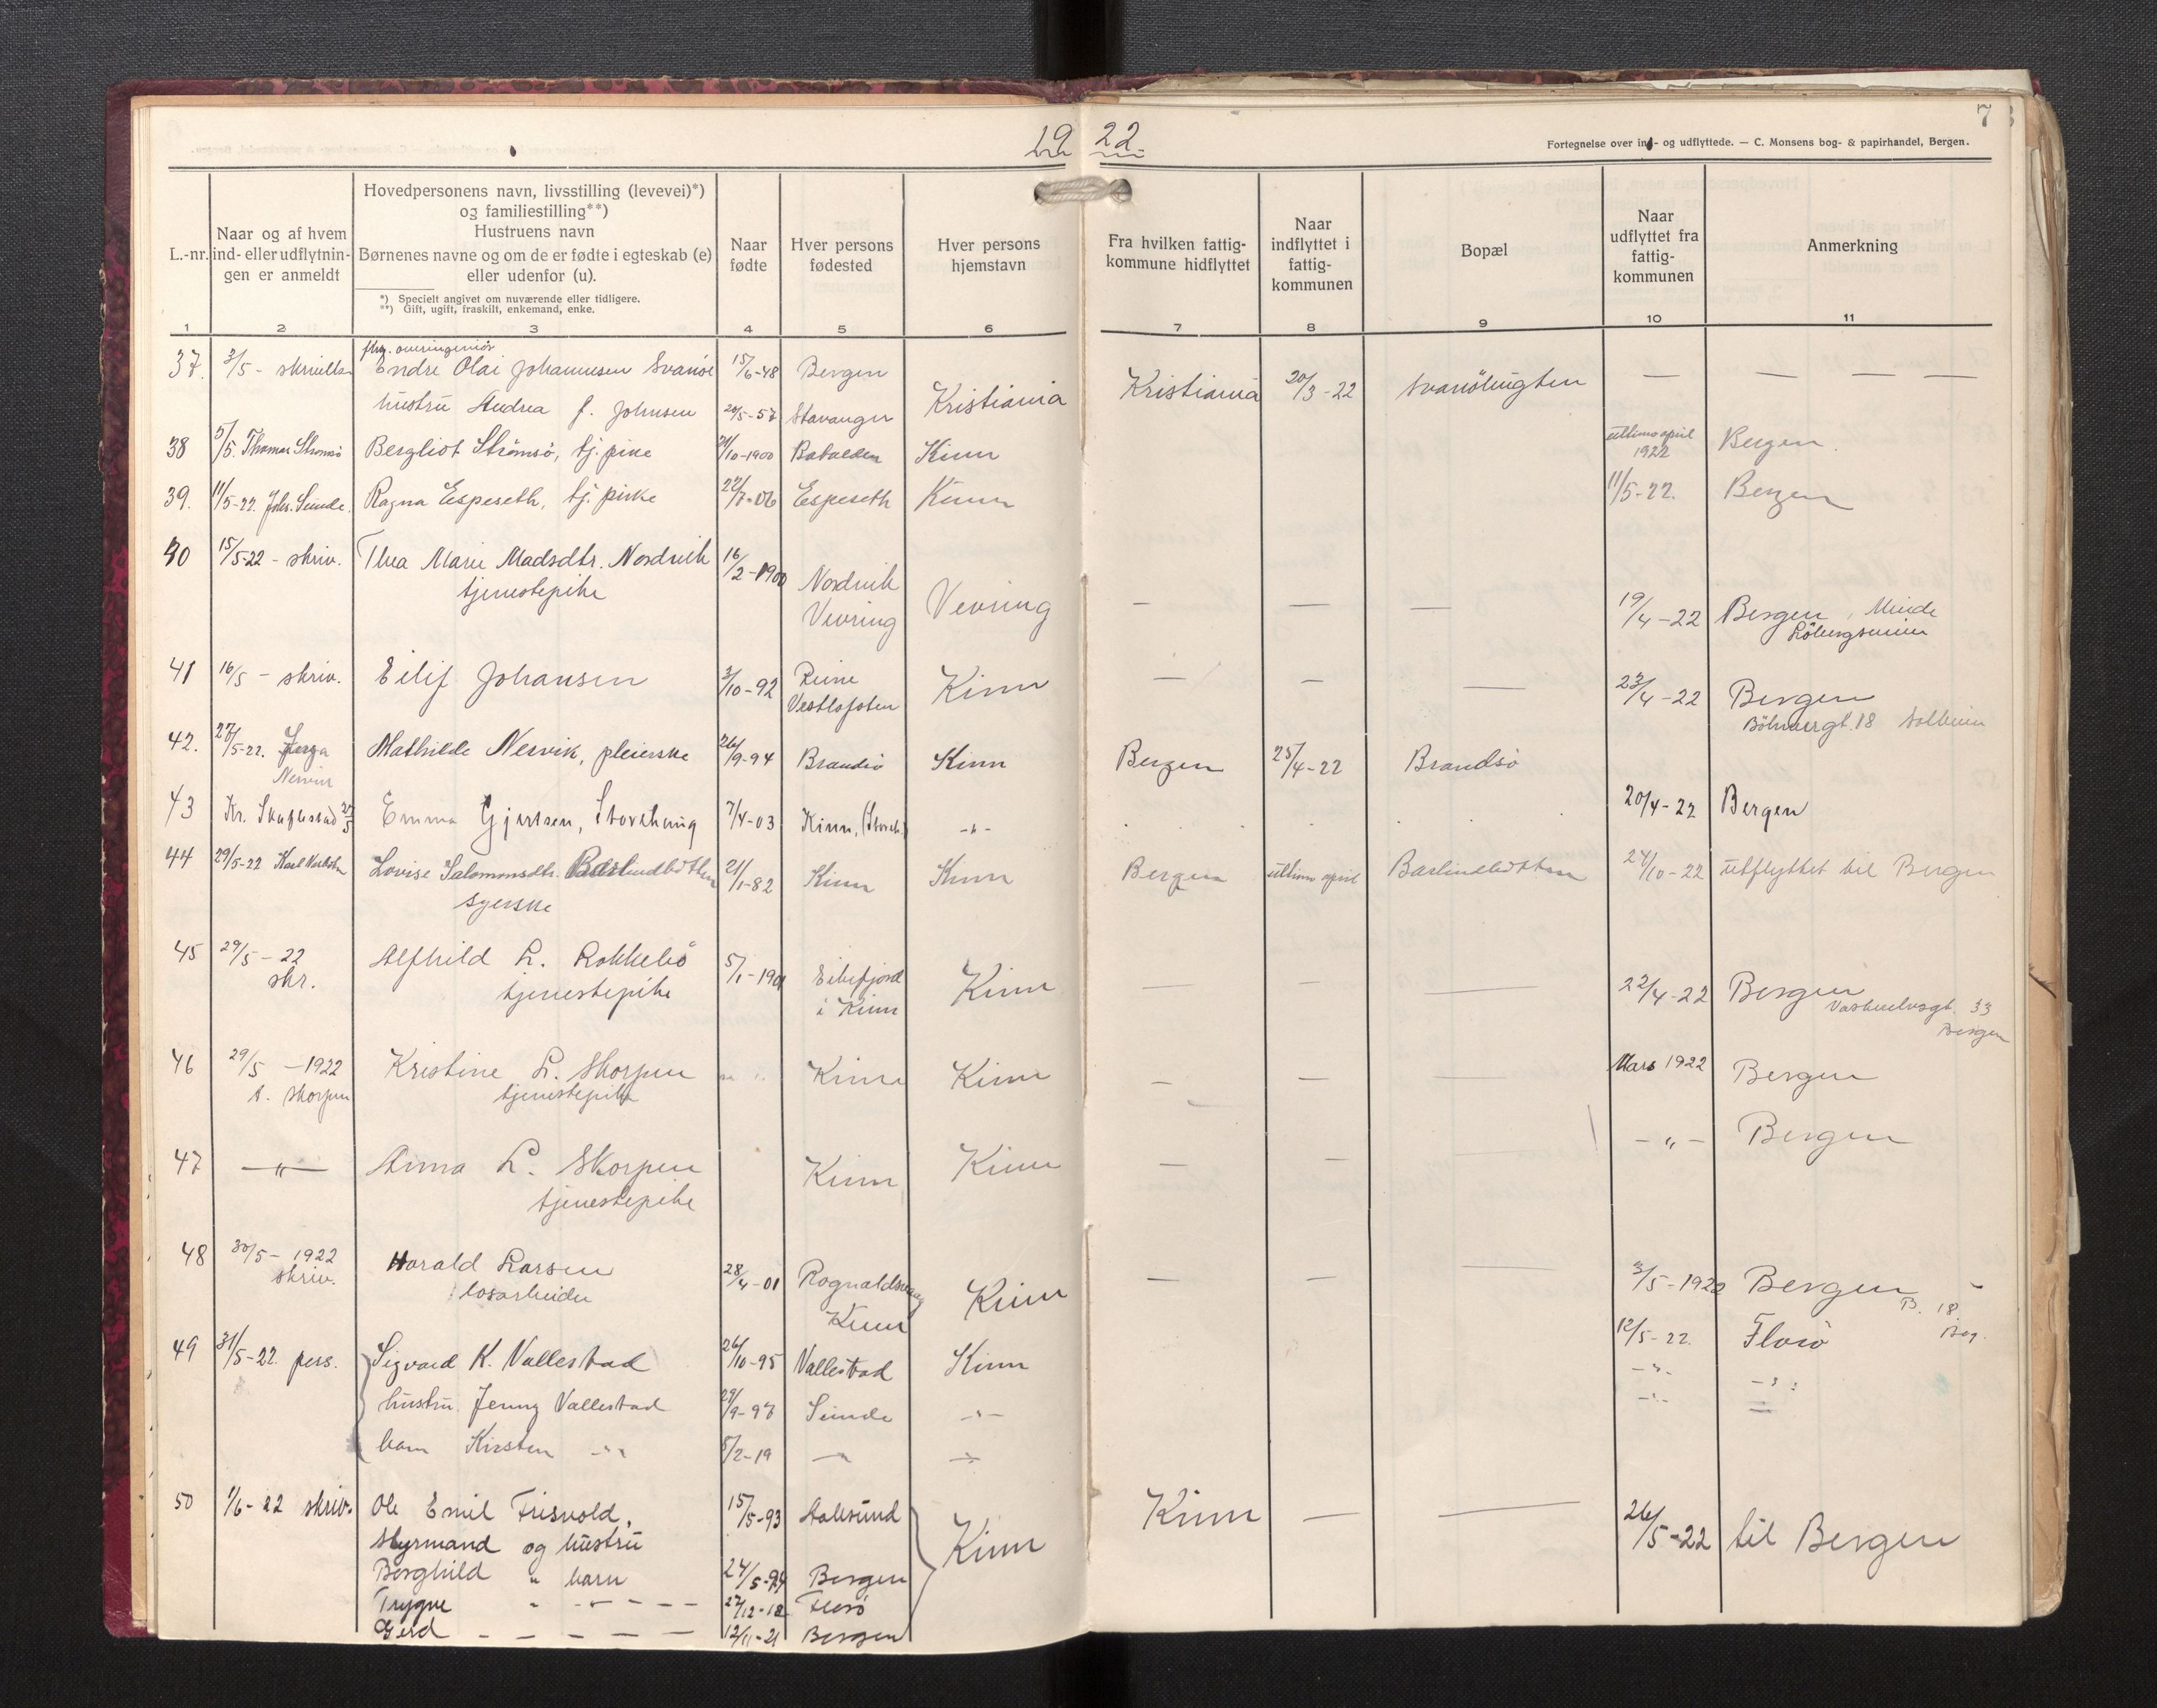 7
19 22.
Fortegnelse over ind- og udflyttede. — C. Monsens bog- & papirhandel, Bergen.
L.-nr.
Naar og af hvem
ind- eller udflytnin-
gen er anmeldt
Hovedpersonens navn, livsstilling (levevei)*)
og familiestilling**)
Hustruens navn
Børnenes navne og om de er fødte i egteskab (e)
eller udenfor (u).
*) Specielt angivet om nuværende eller tidligere.
**) Gift, ugift, fraskilt, enkemand, enke.
Naar
fødte
Hver persons
fødested
Hver persons
hjemstavn
Fra hvilken fattig-
kommune hidflyttet
Naar
indflyttet i
fattig-
kommunen
Bopæl
Naar
udflyttet fra
fattig-
kommunen
Anmerkning
1 2 3 4 5 6 7 8 9 10 11
fhv. overingeniør
37. 3/5 - Endre Olai Johannesen Svanöe 15/6-48 Bergen
hustru Andrea f. Johnsen Stavanger Kristiania Kristiania 20/3-22 — — — —
38 5/5. Thomas Strømsö Bergliot Strømsö, tj. pike /10-1900 Batalden Kinn ultimo april 1922 Bergen.
39. 11/5-22. Johs. Seinde. Ragna Espeseth, tj. pike 22/7-06 Espeseth Kinn 11/5-22. Bergen
40 15/5-22 - skriv. Thea Marie Madsdtr. Nordvik 16/2-1900 Nordvik
tjenestepike Vevring Vevring — — — 19/4-22 Bergen, Minde
41 16/5 - skriv. Eilif Johansen 3/10-92 Reine
Vestlofoten Kinn — — — 23/4-22 Bergen
42. 27/5-22. Nervik Mathilde Nervik, pleierske 26/9-94 Brandsö Kinn Bergen 25/4-22 Brandsö
43 Kr. 27/5 Emma Gjertsen, Storehaug 7/4-03 Kinn, -"- 20/4-22 Bergen
44 29/5-22 Karl Lovise Salomonsdtr. 21/1-82 Kinn Kinn Bergen ultimo april Barlindbotten 24/10-22 utflyttet til Bergen
syerske
45 29/5-22
skr. Alfhild L. Rokkebö 5/1-1901 Eikefjord
tjenestepike i Kinn Kinn — — — 22/4-22 Bergen
33
Bergen
46 29/5-1922
A. Skorpen Kristine L. Skorpen Kinn Kinn — — — Mars 1922 Bergen
tjenestepike
47 —"— Anna L. Skorpen Kinn Kinn — — — -"- Bergen
tjenestepike
48 30/5-1922
skriv. Harald Larsen 28/4-01 Rognaldsvaag
losarbeider Kinn Kinn — — — 3/5-1922 Bergen
49 31/5-22. pers. Sigvard K. Vallestad 26/10-95 Vallestad Kinn 12/5-22. Florö
hustru Jenny Vallestad 29/9-97 Seinde -"- -"- -"-
barn Kirsten -"- 5/2-19 -"- -"- -"-
50 1/6-22 skriv. Ole Emil Frisvold, 15/5-93 Aalesund
Styrmand og hustru Kinn Kinn — — 26/5-22 til Bergen
Borghild " barn 24/5-94 Bergen
Trygve " - - - - 27/12-18 Florö
Gerd - - - - - 12/11-21 Bergen